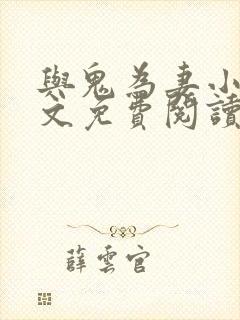 與鬼為妻小
文免費閱讀
薛雲官